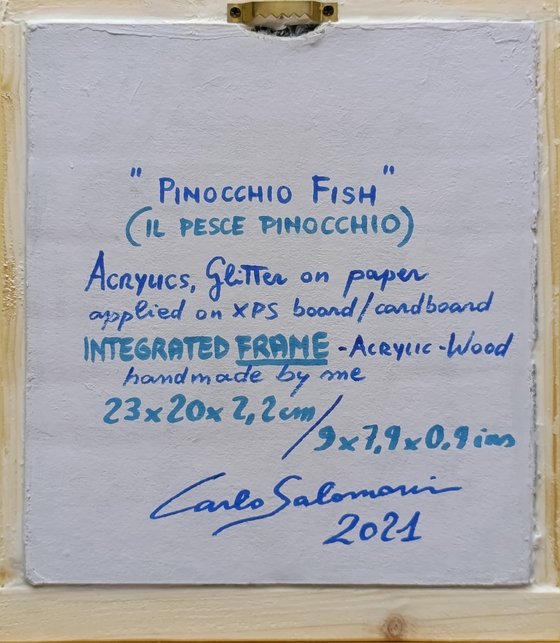 "PINOCCHIO FISH"
(IL PESCE PINOCCHIO)
Acrylics, Glitter on paper
applied on XPS board/cardboard
INTEGRATED FRAME - Acrylic - Wood
handmade by me
23x20x2,2cm/
9x7,9x0.9ins
Carlo Salomoni
2021